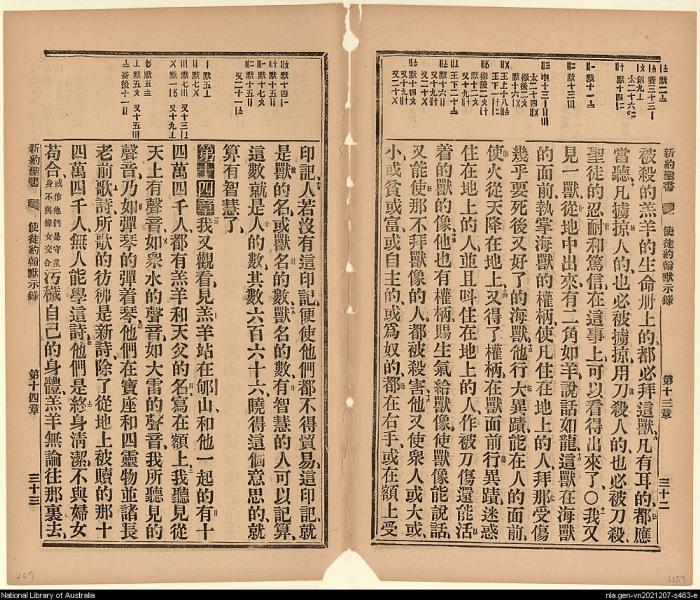 新約聖書 使徒約翰默示錄 第十三章 三十二
被殺的羔羊的生命册上的、都必拜這獸、凡有耳的、都應
當聽、凡擄掠人的、也必被擄掠、用刀殺人的、也必被刀殺、
聖徒的忍耐和篤信、在這事上、可以看得出來了、〇我又
見一獸、從地中出來、有二角如羊、說話如龍、這獸在海獸
的面前、執掌海獸的權柄、使凡住在地上的人、拜那受傷
幾乎要死後又好了的海獸、他行大異蹟、能在人的面前、
使火從天降在地上、又得了權柄、在獸面前行異蹟、迷惑
住在地上的人、並且呌住在地上的人、作被刀傷還能活
着的獸的像、他也有權柄、賜生氣給獸像、使獸像能說話、
又能使那不拜獸像的人、都被殺害、他又使衆人、或大或
小、或貧或富、或自主的、或爲奴的、都在右手、或在額上、受
印記、人若沒有這印記、便使他們都不得貿易、這印記、就
是獸的名、或獸名的數、獸名的數、有智慧的人、可以記算、
這數就是人的數、其數六百六十六、曉得這個意思的、就
算有智慧了、
第十四章 我又觀看、見羔羊站在郇山、和他一起的、有十
四萬四千人、都有羔羊和天父的名、寫在額上、我聽見從
天上有聲音、如衆水的聲音、如大雷的聲音、我所聽見的
聲音、乃如彈琴的彈着琴、他們在寶座和四靈物並諸長
老前歌詩、所歌的彷彿是新詩、除了從地上被贖的那十
四萬四千人、無人能學這詩、他們是終身清潔、不與婦女
苟合、或作他們是守童身不與婦女交合 汚穢自己的身體、羔羊無論往那裏去、
新約聖書 使徒約翰默示錄 第十四章 三十三
459
459
National Library of Australia
nla.gen-vn2021207-s463-e